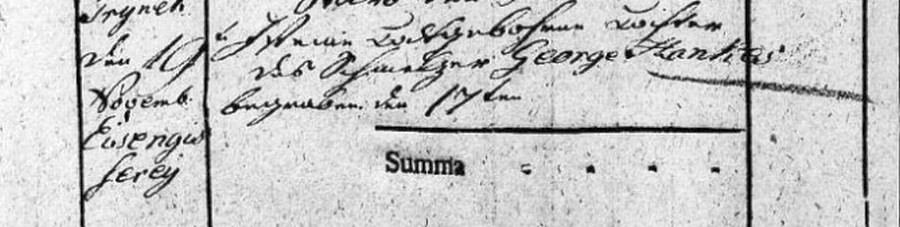 Trynek
den 19
Novemb.
Eisengis
serey
Ist eine todtgebohrne Tochter
des Schmelzer George Hankes
begraben den 17ten
Summa - - - -